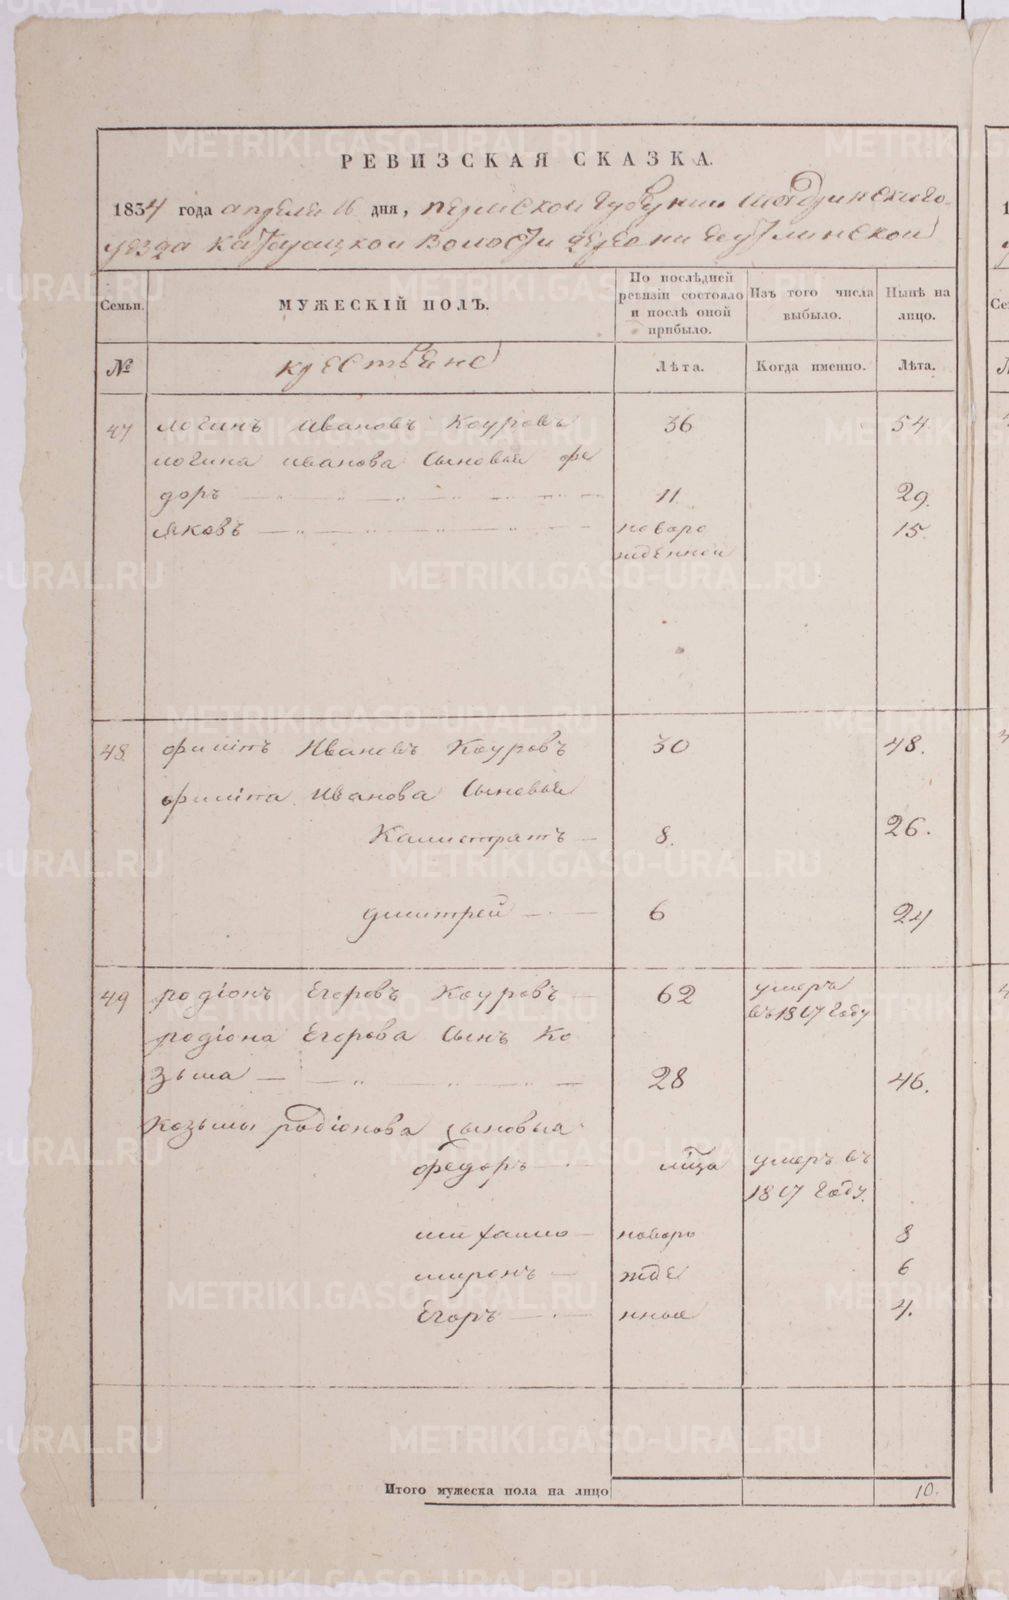 РЕВИЗСКАЯ СКАЗКА.
1834 года апреля 16 дня, Пермской Губернии Шадринскаго
уезда волости деревни
Семьи.
МУЖЕСКІЙ ПОЛЪ.
По послѣдней ревизіи состояло и послѣ оной прибыло.
Изъ того числа выбыло.
Нынѣ на лицо.
№
крестьяне
Лѣта.
Когда именно.
Лѣта.
47 логинъ Ивановъ Коуровъ 36 54
логина иванова Сыновья фе
доръ 11. 29.
яковъ новоро 15.
жденной
48. филипъ Ивановъ Коуровъ 30 48.
филипа Иванова Сыновья
Калистратъ 8. 26.
дмитрей 6 24
49 родіонъ Егоровъ Коуровъ 62 умеръ
въ 1817 Году
родіона Егорова Сынъ Ко
зьма 28 46.
Козьмы родіонова Сыновья
федоръ умеръ въ
1817 Году.
михаило новоро 8
миронъ жде 6
Егоръ нные 4.
Итого мужеска пола на лицо 10.
METRIKI.GASO-URAL.RU